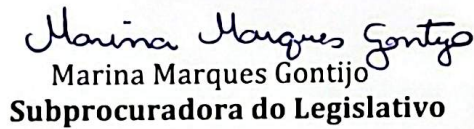 Marina Marques Gontijo
Marina Marques Gontijo
Subprocuradora do Legislativo